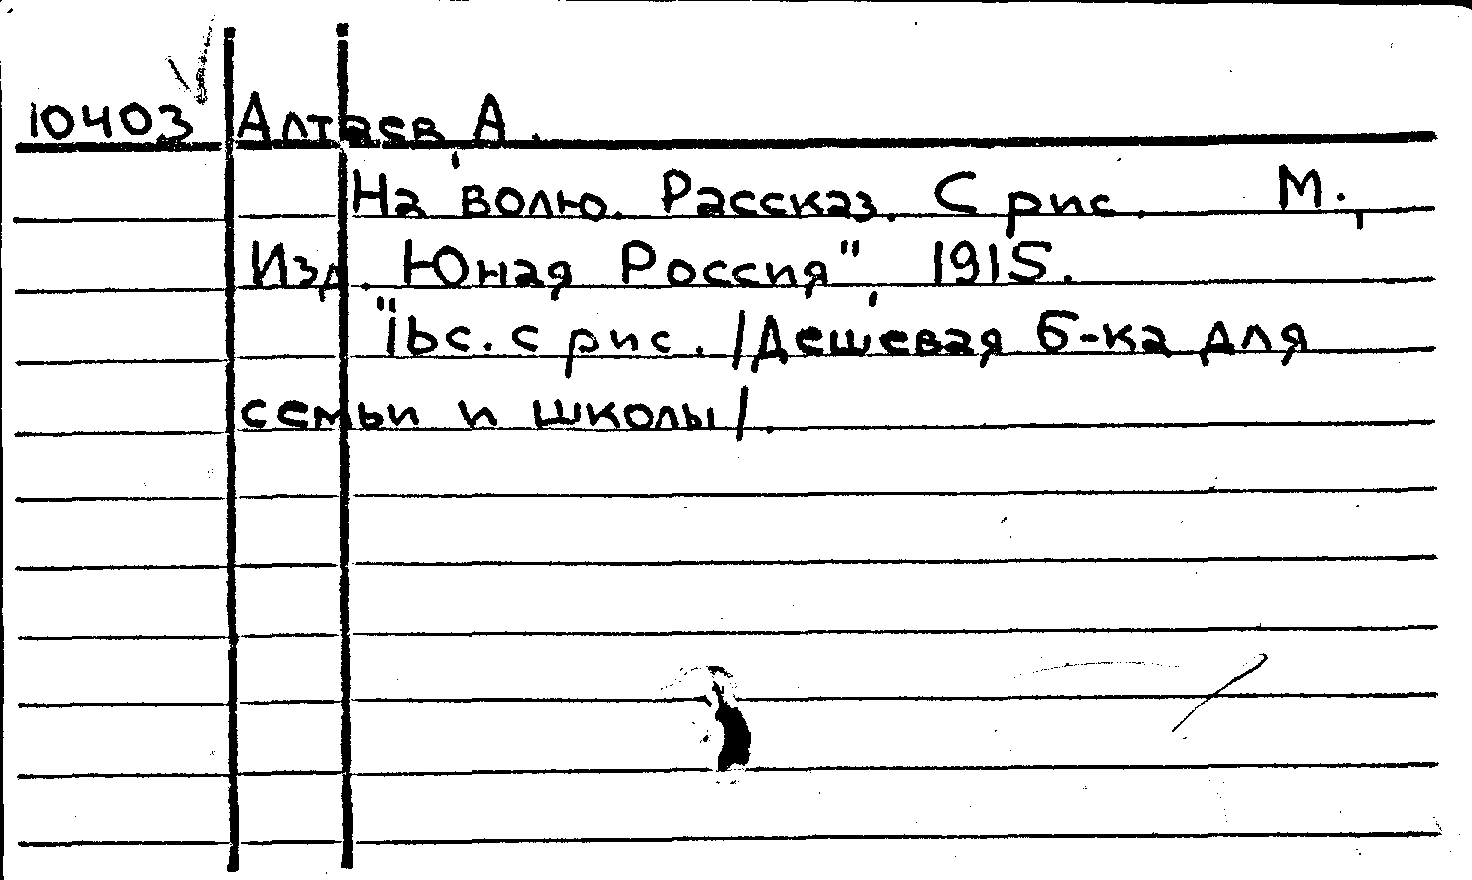 10403 Алтаев, А.
На волю. Рассказ. С рис. М.,
Изд. "Юная Россия", 1915.
16с. с рис. /Дешевая б-ка для
семьи и школы/.